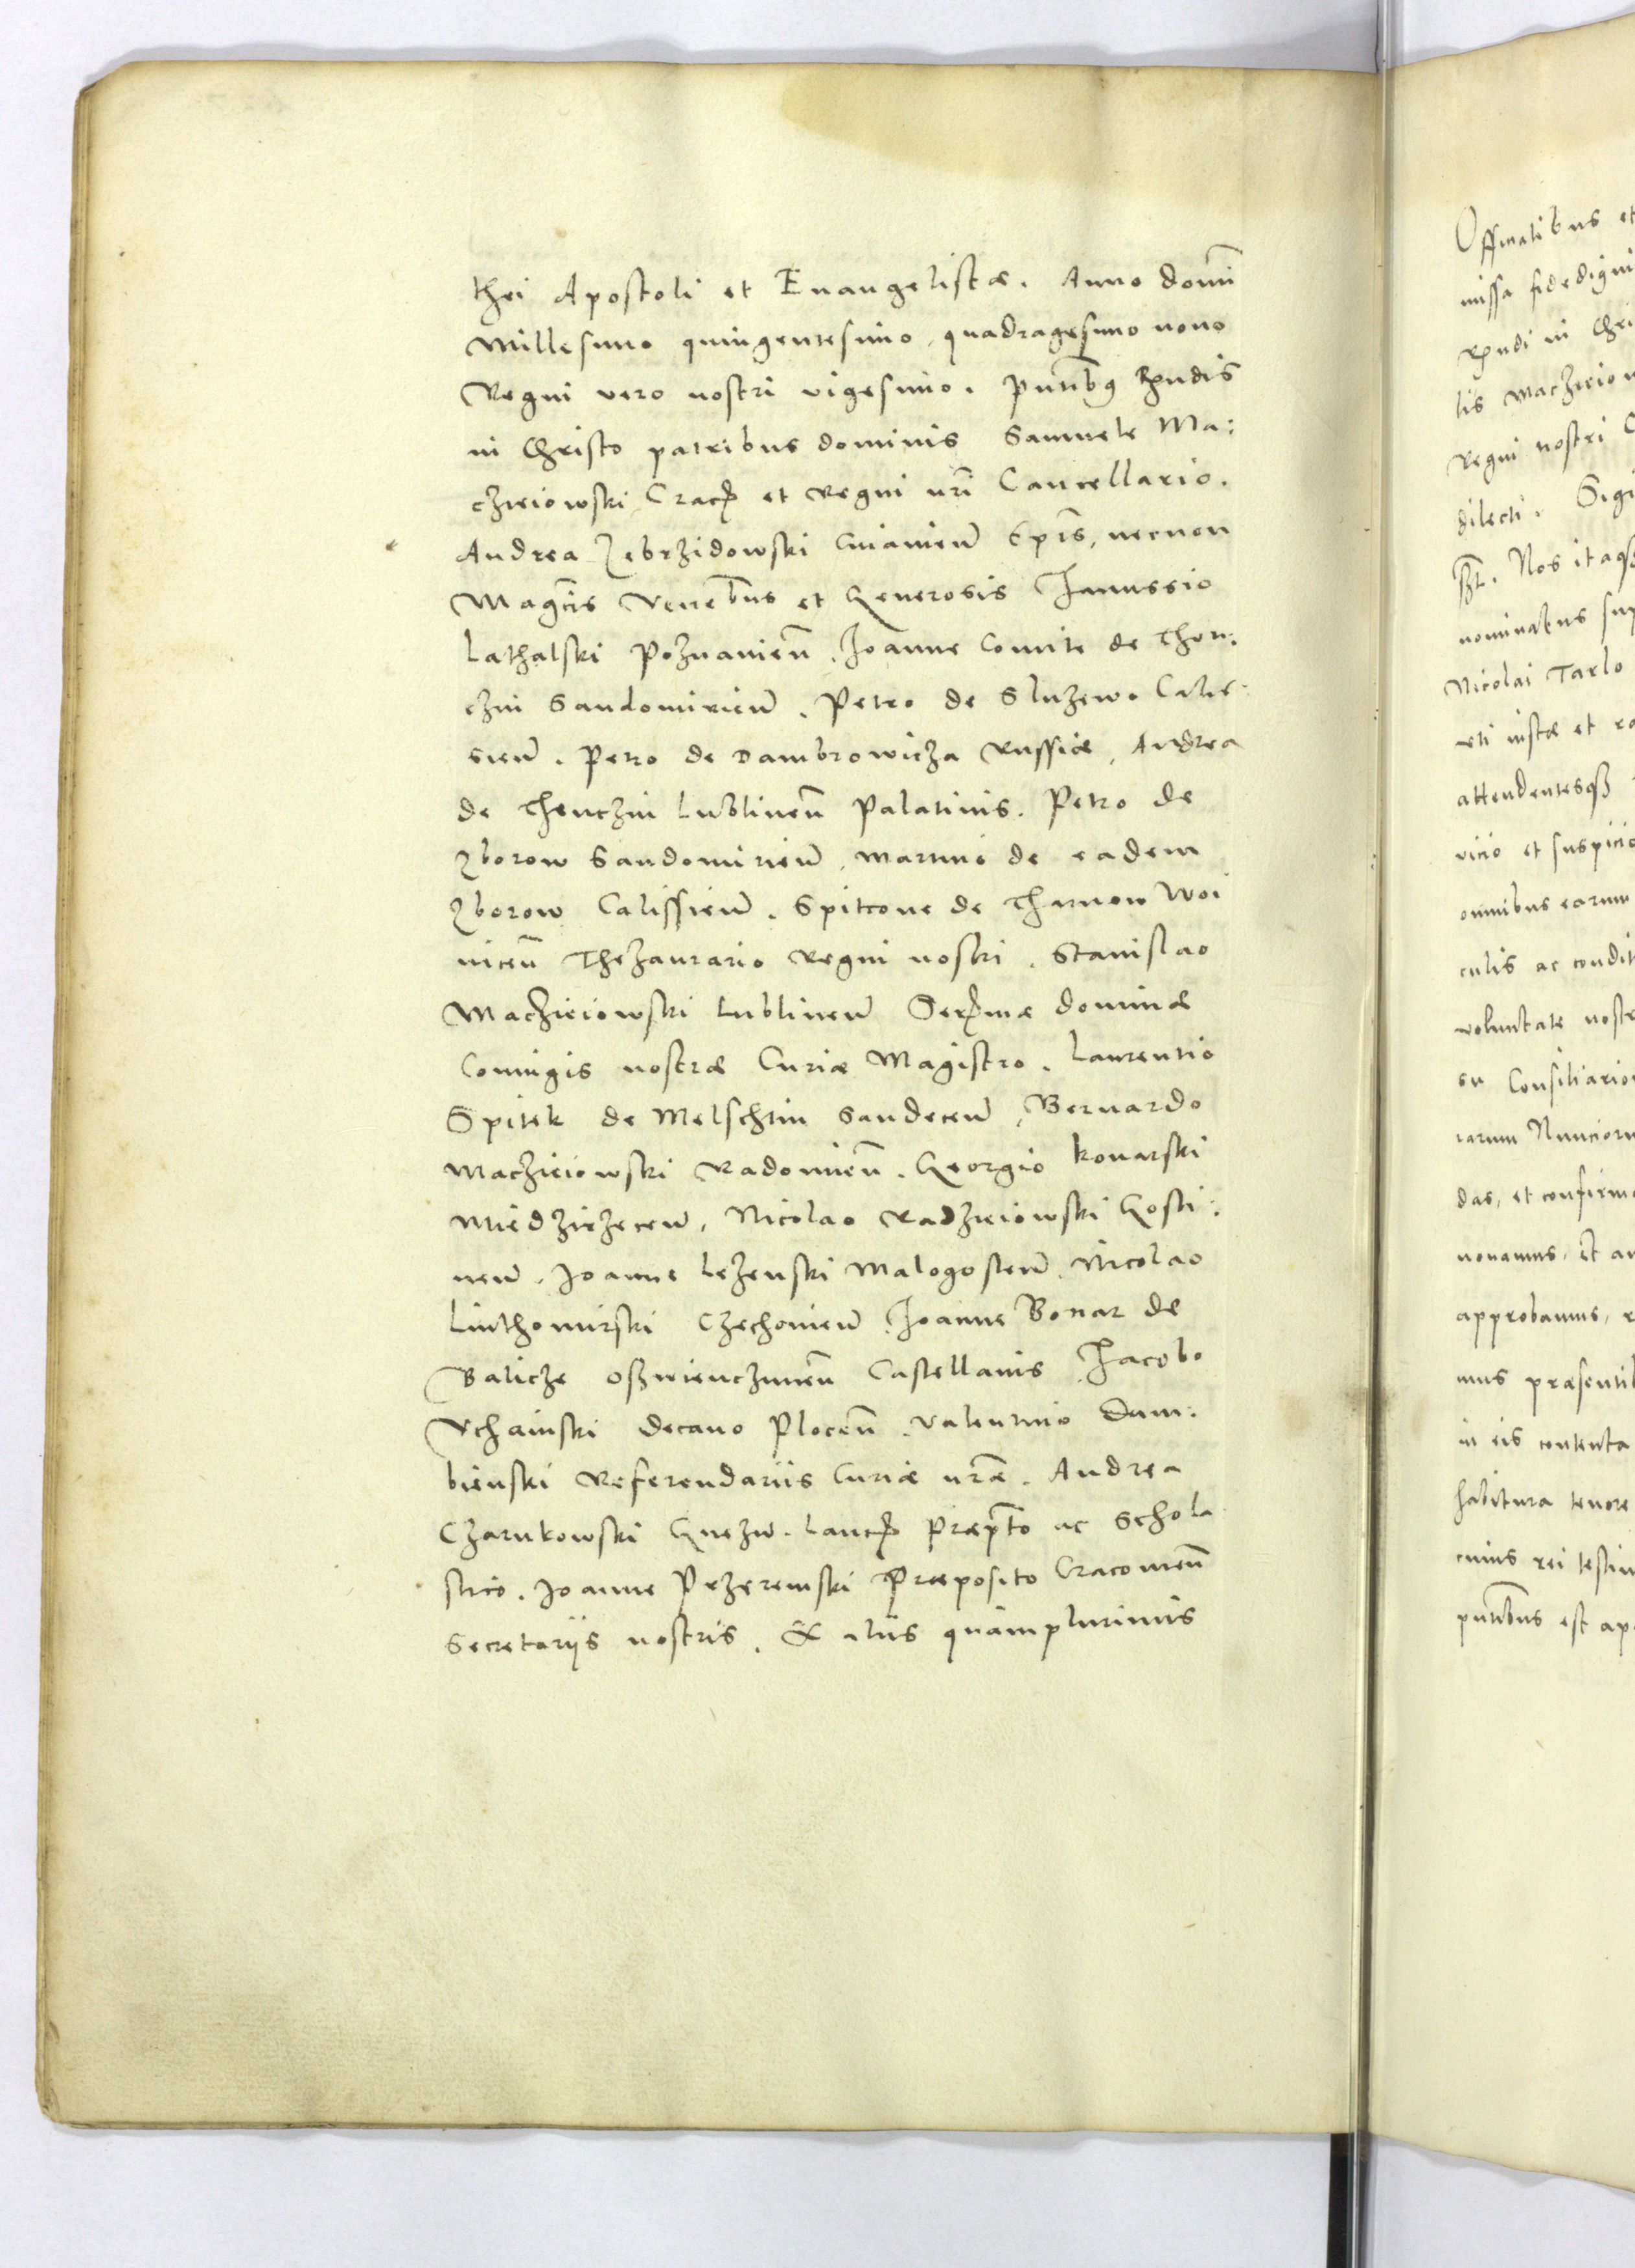 thei Apostoli et Euangelistæ. Anno domĩ
Millesimo quingentesimo, quadragesimo nono
Regni vero nostri vigesimo. Pntibꝰ Rndis
in Christo patribus dominis Samuele Ma:
czieiowski Cracoꝝ et Regni nri Cancellario.
Andrea Zebrzidowski Cuiauien̄ Epis, necnon
Magcis Venebus et Generosis Janussio
Lathalski Poznanien̄. Joanne Comite de Then:
czin Sandomirien̄. Petro de Sluzewo Calis-
sien̄. Petro de Dambrowicza Russiæ, Andrea
de Thenczin Lublinen̄ Palatinis. Petro de
Zborow Sandomirien̄, Martino de eadem
Zborow Calissien̄. Spitcone de Tharnow Woi
nicen̄ Thezaurario Regni nostri. Stanislao
Maczieiowski Lublinen̄ Serꝝmæ dominæ
Coniugis nostræ Curiæ Magistro. Laurentio
Spitek de Melschtin Sandecen̄, Bernardo
Maczieiowski Radomien̄. Georgio Konarski
Miedzirzecen̄, Nicolao Radzieiowski Gosti:
nen̄. Joanne Lezenski Malogosten̄. Nicolao
Linthomirski Czechouien̄. Joanne Bonar de
Balicze Oszwienczimen̄ Castellanis. Jacobo
Vchainski decano Plocen̄. Valentino Dam:
bienski Referendariis Curiæ nræ. Andrea
Czarnkowski Gnezn. Lanciꝝ Præpto ac Schola
stico. Joanne Przeremski Præposito Cracouien̄
Secretariis nostris. & aliis quamplurimis
Offitialibus et
missa fidedigni
Rndi in Chri
lis Maczieiow
Regni nostri C
dilecti. Sigi
szt. Nos itaqꝫ
nominatus sup
Nicolai Tarlo
uti iustæ et ra
attendentesqꝫ
vicio et suspicio
omnibus earum
culis ac condit
voluntate nostr
eu Consiliario
rarum Nuncioru
das, et confirma
nouamus, Et au
approbamus, r
mus præsentib
in eis contenta
habitura tenore
cuius rei testim
pntibus est ap